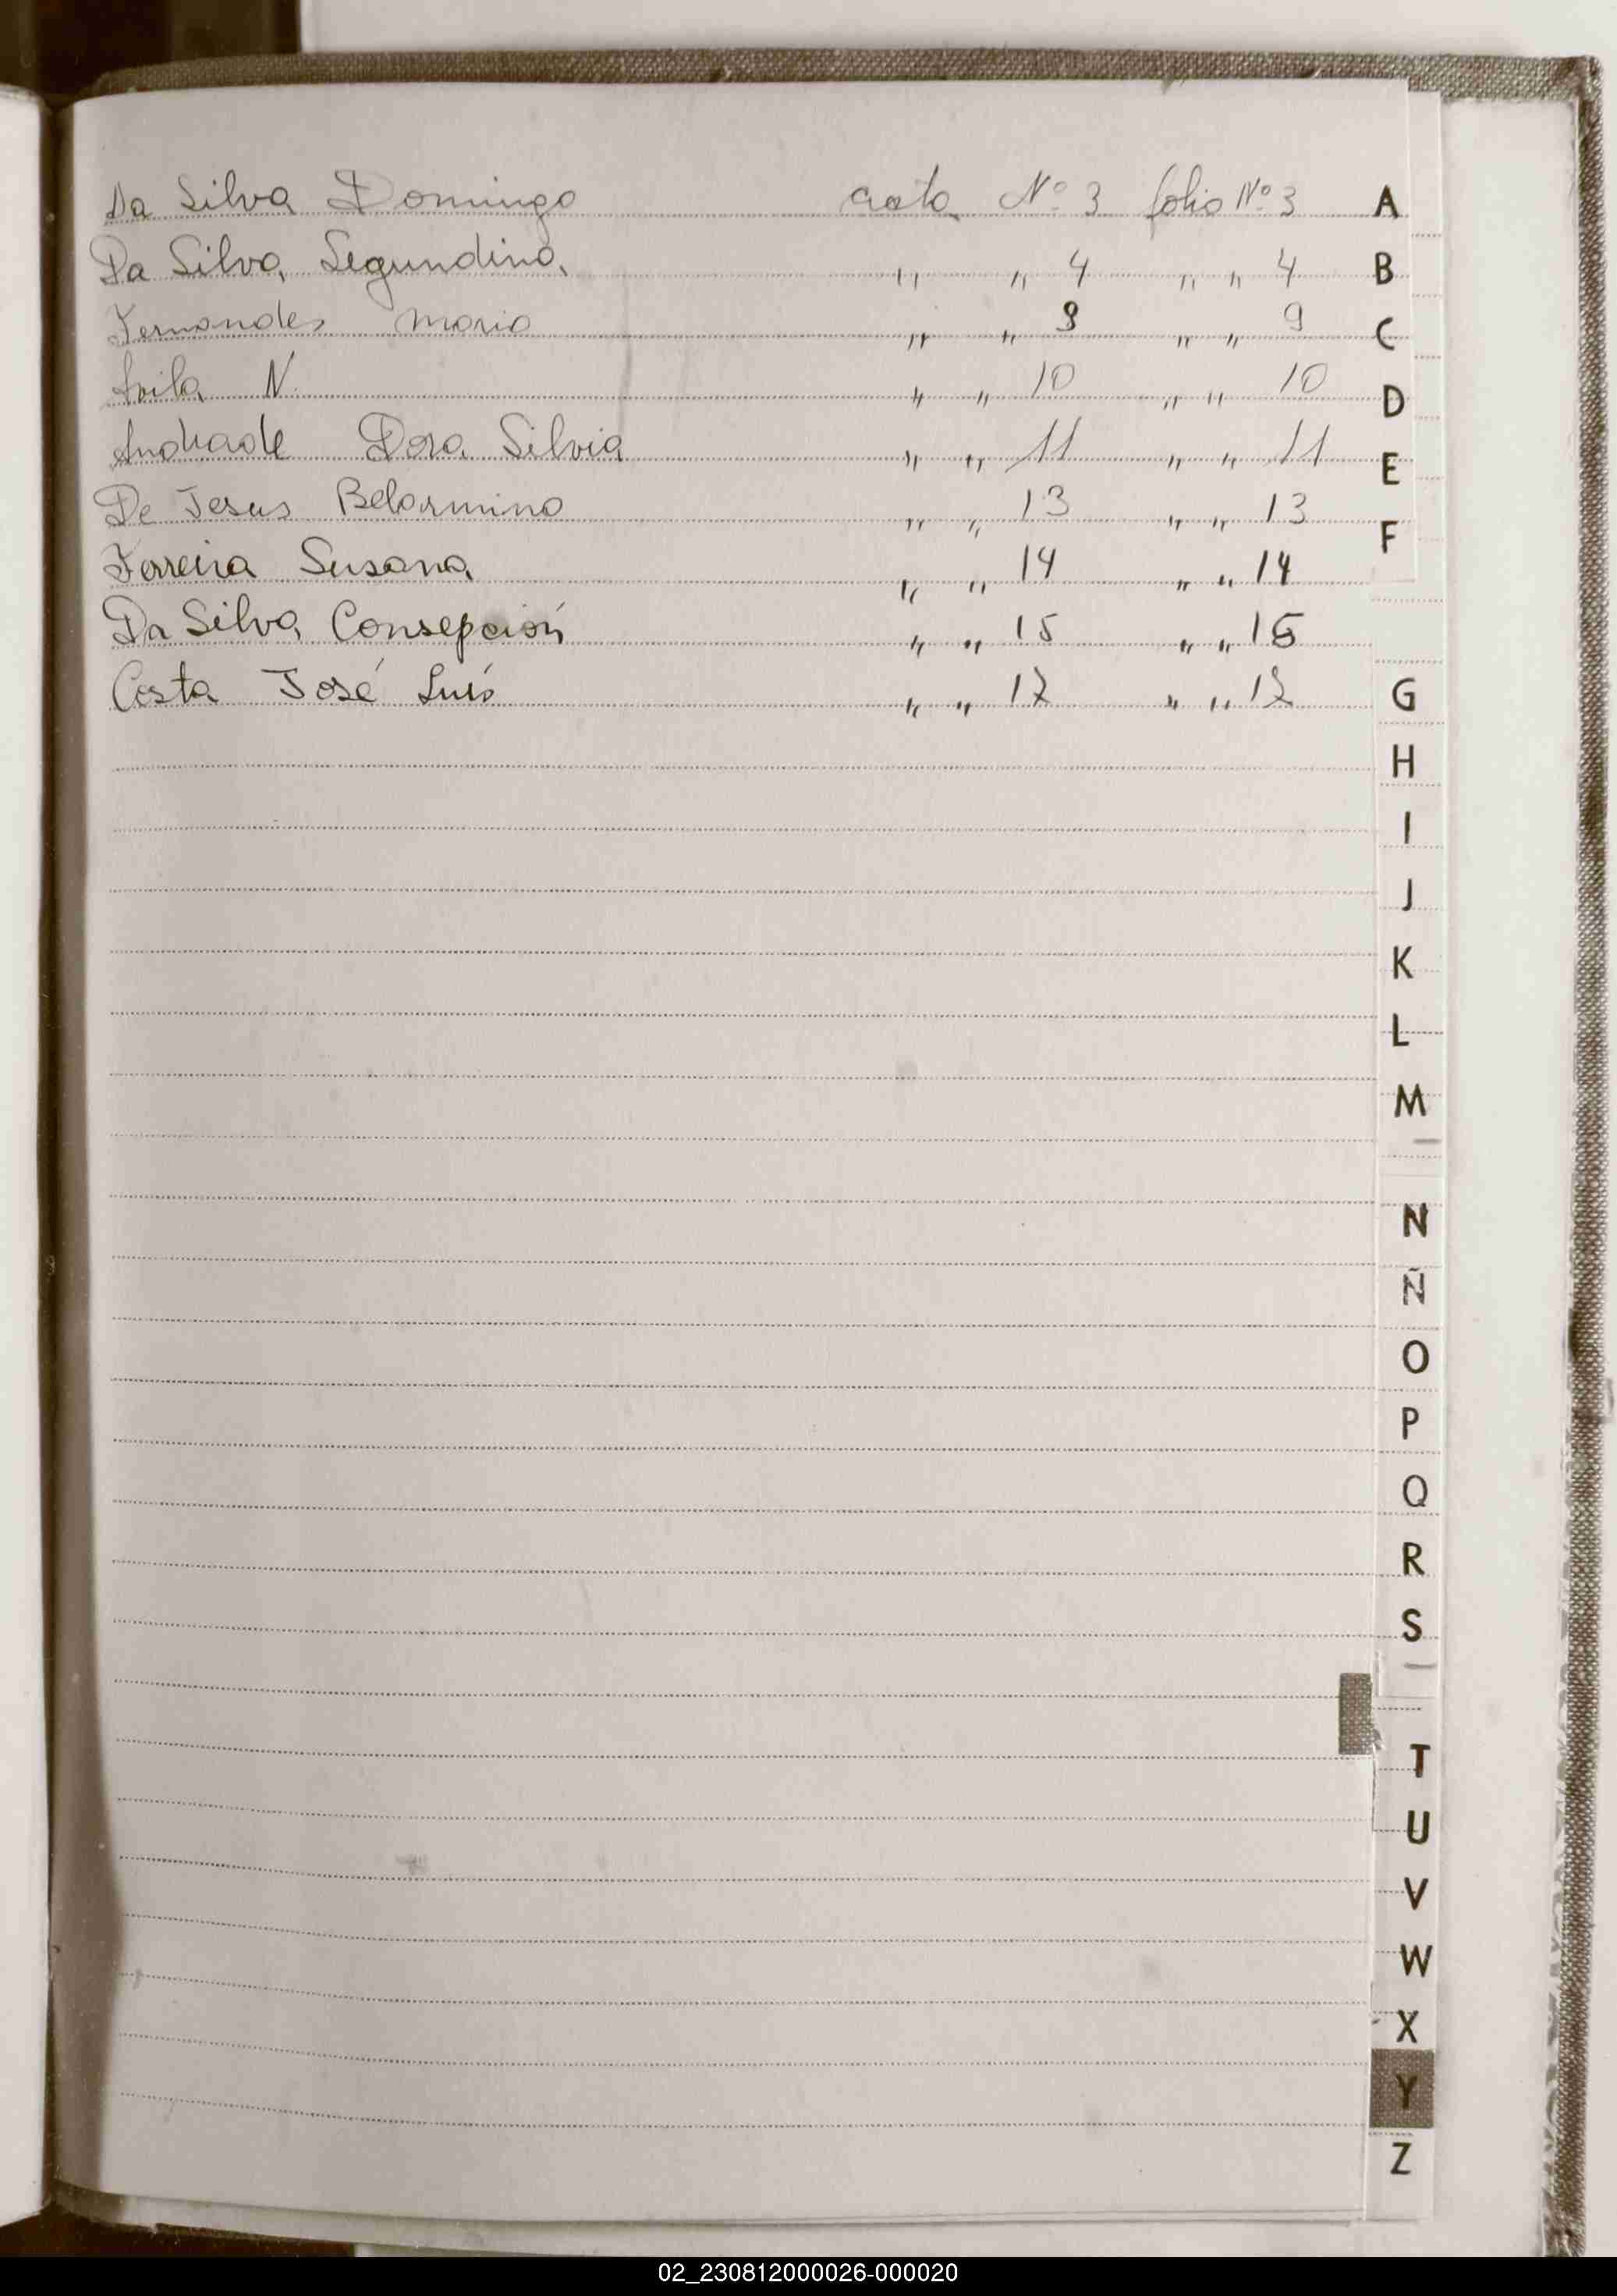 Da Silva Domingo acta Nº 3 folio Nº 3 A
Da Silva Segundina " " 4 " " 4 B
Fernandes Maria " " 9 " " 9 C
Avila N. " " 10 " " 10 D
Andrade Dora Silvia " " 11 " " 11 E
De Jesus Belarmino " " 13 " " 13 F
Ferreira Susana " " 14 " " 14
Da Silva Consepción " " 15 " " 15
Costa José Luis " " 17 " " 17 G
H
I
J
K
L
M
N
Ñ
O
P
Q
R
S
T
U
V
W
X
Y
Z
02_230812000026-000020